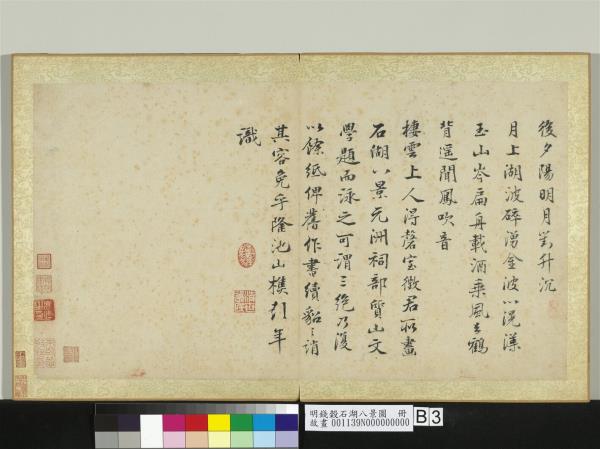 後夕陽明月并升沉
月上湖波碎湧金波以滉漾
玉山岑扁舟載酒乘風去鶴
背遥聞鳳吹音
棲雲上人得磬室徵君所畫
石湖八景元洲祠部質山文
學題而詠之可謂三絶乃復
以餘紙俾舊作書續貂之誚
其容免乎隆池山樵彭年
識
明錢穀石湖八景圖 冊
故畫 001139N000000000
B3